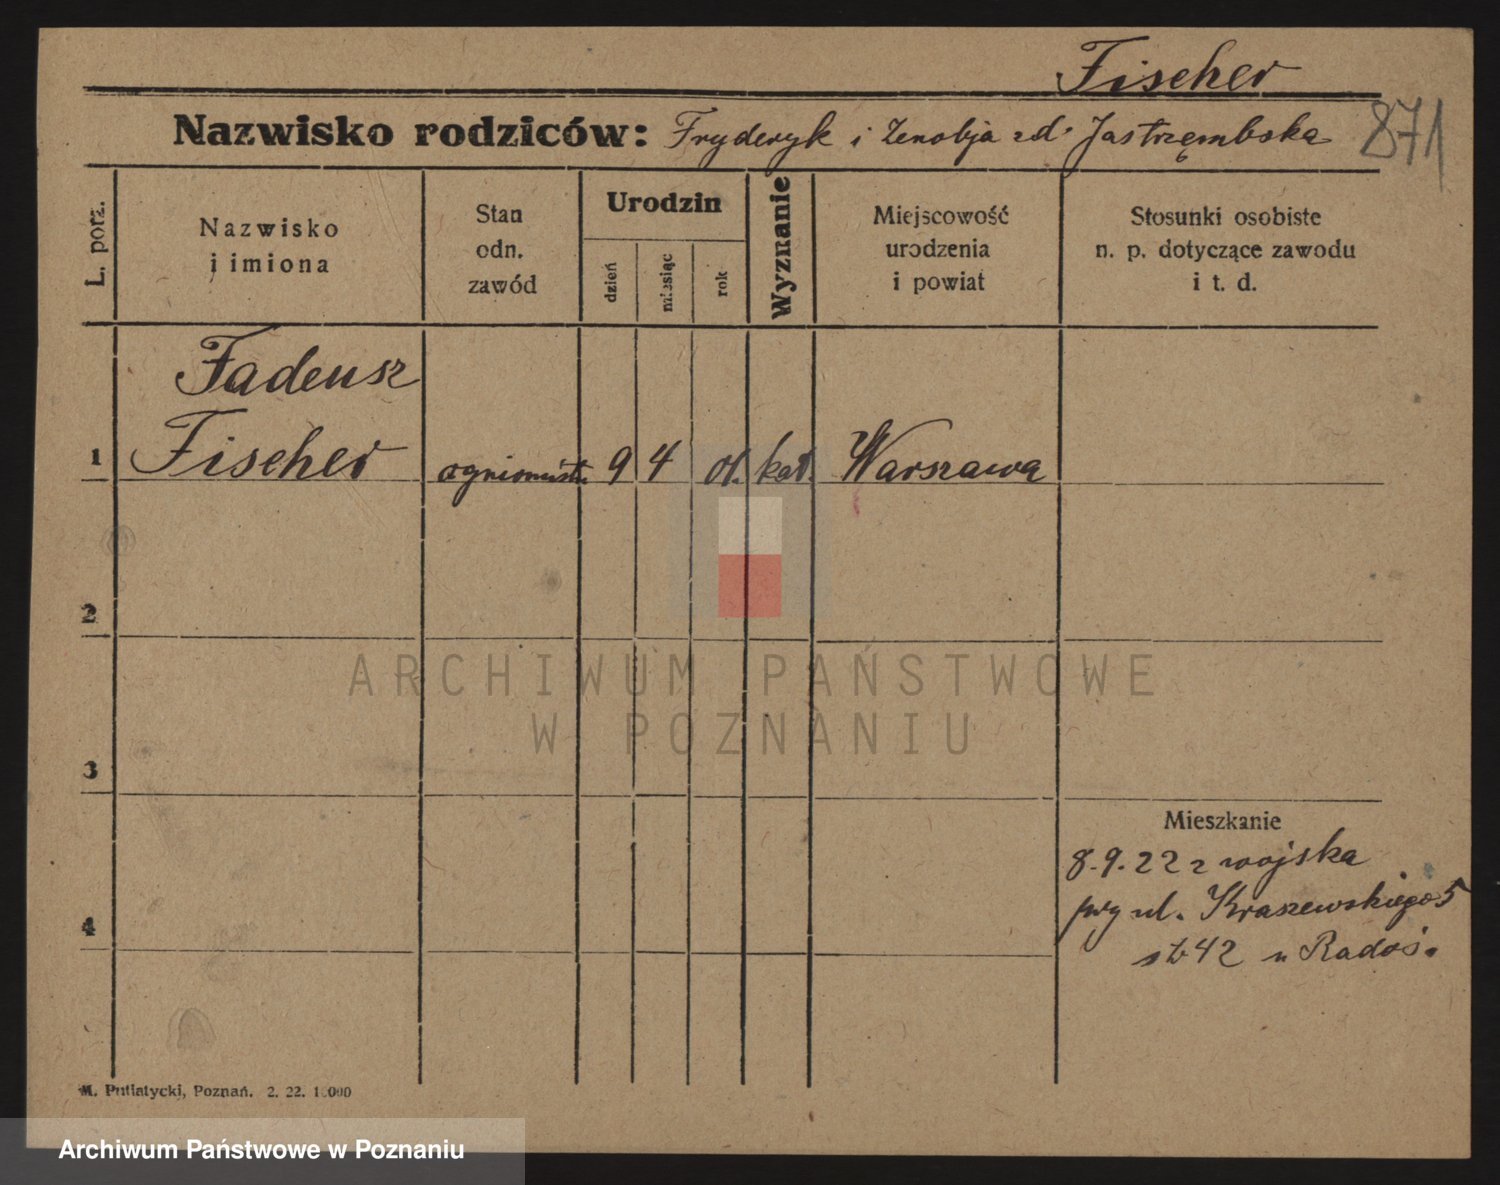 Fischer
Nazwisko rodziców: Fryderyk i Zenobja zd. Jastrzęmbska
871
L. porz.
Nazwisko
i imiona
Stan
odn.
zawód
Urodzin
dzień
miesiąc
rok
Wyznanie
Miejscowość
urodzenia
i powiat
Stosunki osobiste
n. p. dotyczące zawodu
i t. d.
Tadeusz
1 Fischer ogniomistr. 9 4 01. kat. Warszawa
2
3
4
Mieszkanie
8.9.22 z wojska
przy ul. Kraszewskiego 5
42 u Rados.
M. Putiatycki, Poznań. 2. 22. 10000
ARCHIWUM PAŃSTWOWE
W POZNANIU
Archiwum Państwowe w Poznaniu